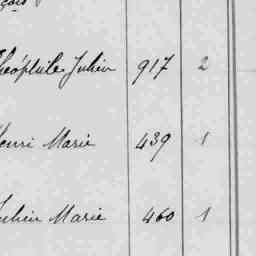 Théophile Julien 917 2
Henri Marie 439 1
Julien Marie 460 1